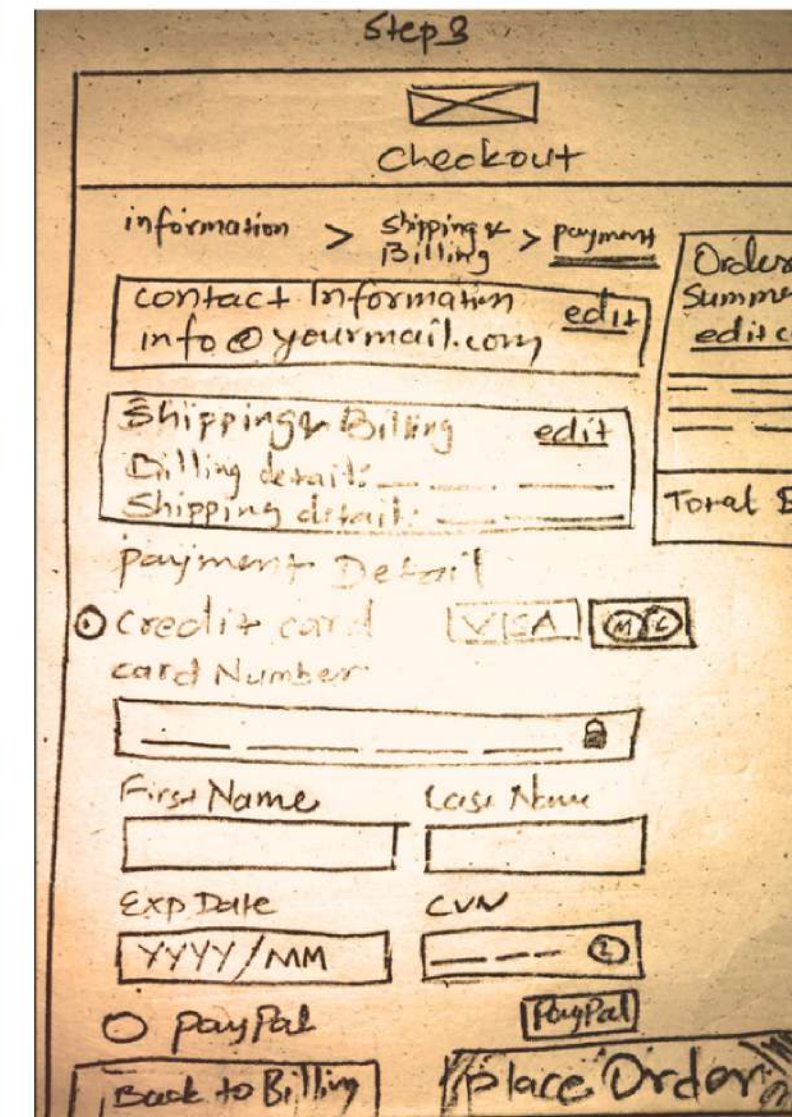 Step 3
Checkout
information > Shipping & Billing > payment
Contact Information edit
info@yourmail.com
Order
Summe
edit c
Shipping & Billing edit
Billing detail:
Shipping detail:
Total $
payment Detail
Credit card VISA MC
card Number
First Name Last Name
Exp Date CVN
YYYY/MM ?
payPal PayPal
Back to Billing Place Order